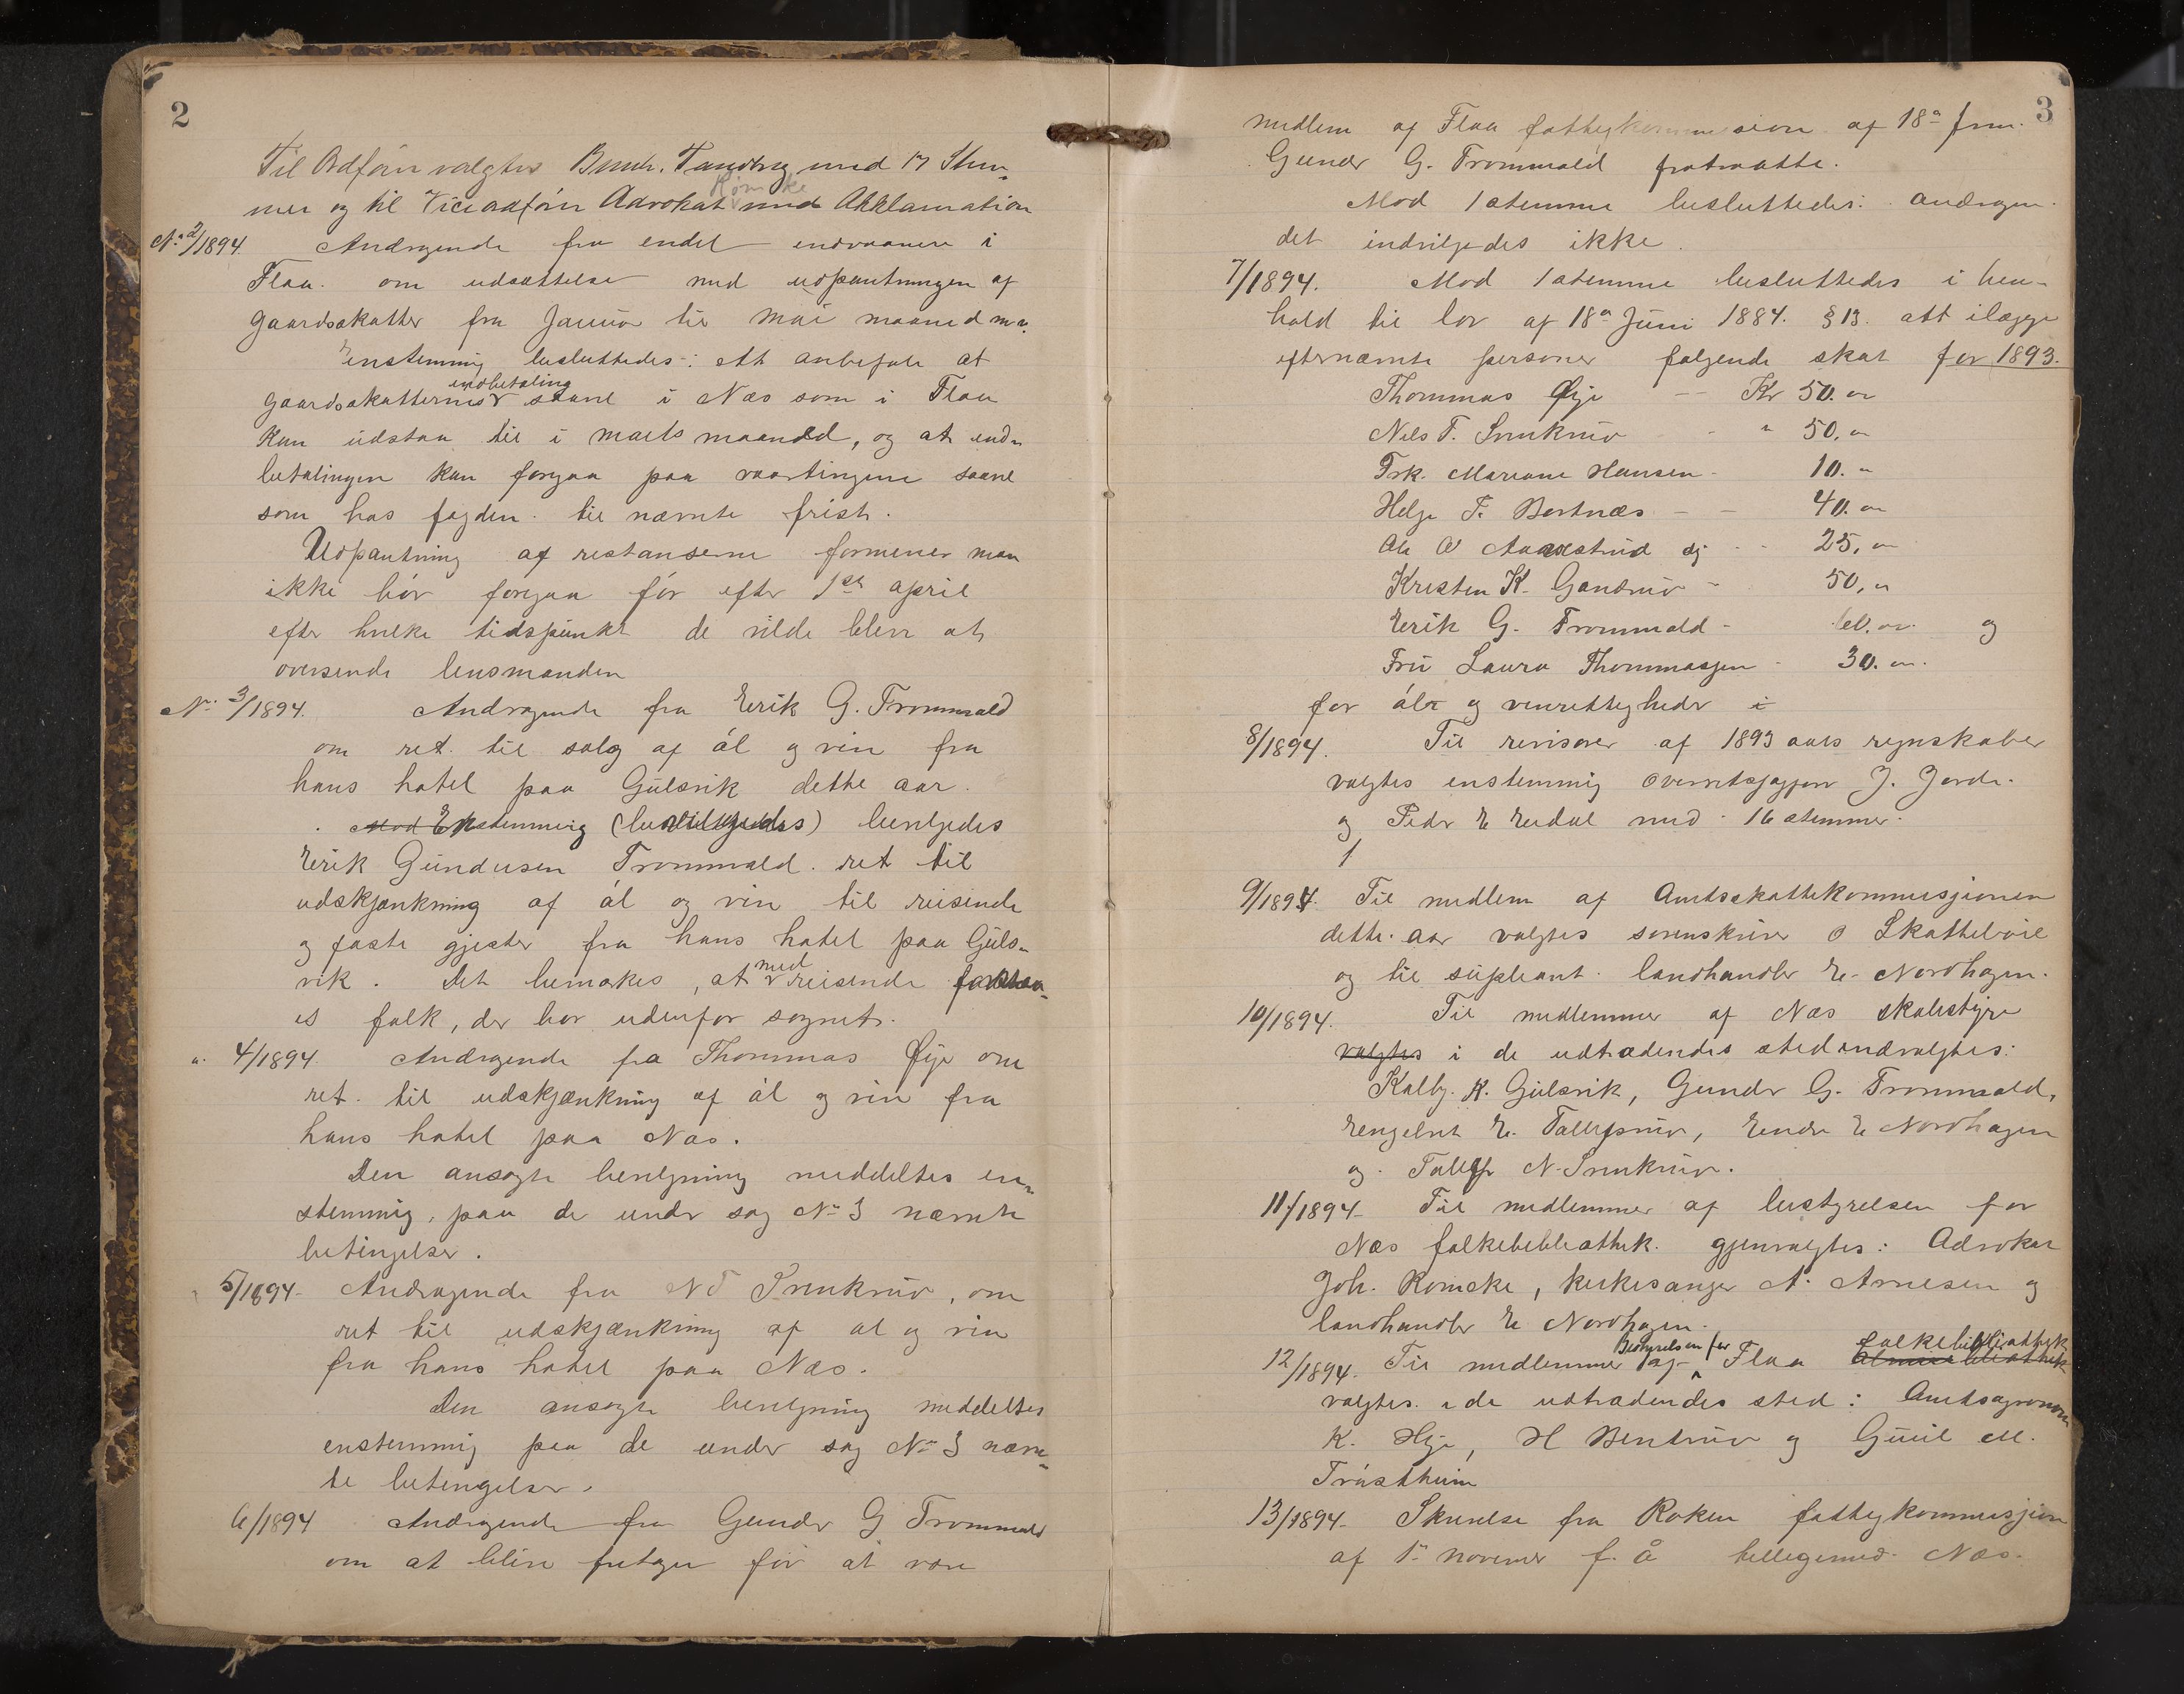 2
Til Ordfører valgtes Bmstr. Tandberg med 17 Stem-
Rømcke
mer og til Viceordfører Advokat med Akklamation
No 2/1894. Andragende fra endel indvaanere i
Flaa om udsættelse med udpantningen af
gaardsskatter fra Januar til mai maaned
Enstemmig besluttedes: att anbefale at
indbetaling
gaardsskatternes saavel i Næs som i Flaa
kan udstaa til i marts maaned, og at ind-
betalingen kan foregaa paa vaartingene saavel
som hos fogden til nævnte frist.
Udpantning af restanserne formener man
ikke bør foregaa før efter 1ste april
efter hvilke tidspunkt de vilde blive at
oversende lensmanden
No. 3/1894. Andragende fra Erik G. Trommald
om ret til salg af øl og vin fra
hans hotel paa Gulsvik dette aar.
Mod Enstemmig (bevilgedes) bevilgedes
Erik Gundersen Trommald ret til
udskjænkning af øl og vin til reisende
og faste gjester fra hans hotel paa Guls-
med
vik. Det bemærkes, at reisende forstaa-
es folk, der bor udenfor sognet.
" 4/1894. Andragende fra Thommas Øije om
ret til udskjænkning af øl og vin fra
hans hotel paa Næs.
Den ansøgte bevilgning meddeltes en-
stemmig, paa de under sag No 3 nævnte
betingelser.
5/1894 Andragende fra N T Smukrud, om
ret til udskjænkning af øl og vin
fra hans hotel paa Næs.
Den ansøgte bevilgning meddeltes
enstemmig paa de under sag No 3 nævn-
te betingelser.
6/1894 Andragende fra Gunder G Trommald
om at blive fritagen før at være
3
medlem af Flaa fattigkommission af 18de Jan.
Gunder G. Trommald fratraatte.
Mod 1 stemme besluttedes: andragen-
det indvilgedes ikke.
7/1894. Mod 1 stemme besluttedes i hen-
hold til lov af 18de Juni 1884. § 13. att ilægge
efternævnte personer følgende skat for 1893.
Thommas Øije -- Kr 50. "
Nils T. Smukrud - " 50. "
Frk. Mariane Hansen - 10. "
Helge T. Bortnæs - - 40. "
Ole O Aavestrud - - 25. "
Kristen K. Gandrud - 50. "
Erik G. Trommald - 60. " og
Fru Laura Thommasjen - 30. "
for øl og vinrettigheder i
8/1894. Til revisorer af 1893 aars regnskaber
valgtes enstemmig overretssagfører J. Jorde.
og Peder E Eidal med 16 stemmer.
1
9/1894. Til medlem af Amtsskattekommisjonen
dette aar valgtes sorenskriver O Skattebøe
og til supleant landhandler E. Nordhagen.
10/1894. Til medlemmer af Næs skolestyre
valgtes i de udtrædendes sted indvalgtes:
Kolbj. K. Gulsvik, Gunder G. Trommald,
Engebret E. Tollefsrud, Endre E Nordhagen
og Tollef N. Smukrud.
11/1894 Til medlemmer af bestyrelsen for
Næs folkebibliothek gjenvalgtes: Advokat
Joh. Rømcke, kirkesanger A. Arnesen og
landhandler E Nordhagen.
Bestyrelsen for folkebibliothek
12/1894. Til medlemmer af Flaa
valgtes i de udtrædendes sted: Amtsagronom
K. Hye, H Bentrud og Guul M.
Trøstheim
13/1894 Skrivelse fra Røken fattigkommisjon
af 1ste november f. å. billegemed. Næs.